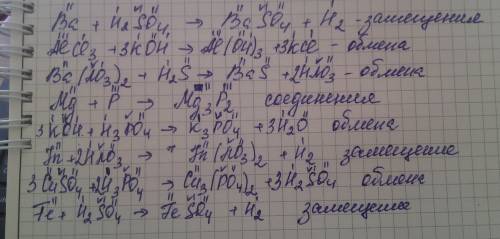 Ba + H2SO4 → BaSO4 + H2 - замещения
AlCl3 + 3KOH → Al(OH)3 + 3KCl - обмена
Ba(NO3)2 + H2S → BaS + 2HNO3 - обмена
Mg + P → Mg3P2 соединения
3KOH + H3PO4 → K3PO4 + 3H2O обмена
Zn + 2HNO3 → Zn(NO3)2 + H2 замещение
3CuSO4 + 2H3PO4 → Cu3(PO4)2 + 3H2SO4 обмена
Fe + H2SO4 → FeSO4 + H2 замещения